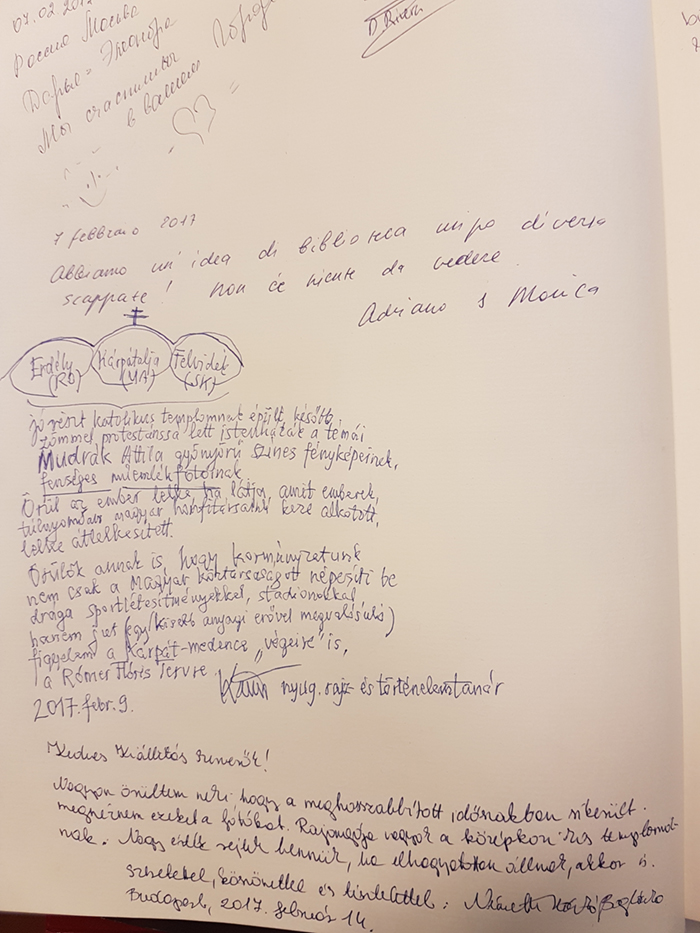 07.02.201
Россия Москва
Дарья = Элеонора
Мы счастливы
в вашем городе
D. Rivera
7 febbraio 2017
Abbiamo un'idea di biblioteca un po diversa
scappate! Non c'è niente da vedere
Adriano s Monica
Erdély Kárpátalja Felvidék
(RO) (UA) (SK)
Jórészt katolikus templomnak épült, később
zömmel protestánssá lett istenházák a témái
Mudrák Attila gyönyörű színes fényképeinek,
fenséges műemlékfotóinak.
Örül az ember lelke, ha látja, amit emberek,
túlnyomóan magyar honfitársaink keze alkotott,
lelke átlelkesített.
Örülök annak is, hogy kormányzatunk
nem csak a Magyar Köztársaságot népesíti be
drága sportlétesítményekkel, stadionokkal,
hanem jut (egy kisebb anyagi erővel megvalósuló)
figyelem a Kárpát-medence „végeire" is,
a Rómer Flóris Tervre.
nyug. rajz és történelemtanár
2017. febr. 9.
Kedves Kiállítás Szervezők!
Nagyon örültem neki, hogy a meghosszabbított időszakban sikerült
megnéznem ezeket a fotókat. Rajongója vagyok a középkori kis templomok-
nak. Nagy érték rejlik bennük, ha elhagyatottan állnak, akkor is.
Szeretettel, köszönettel és tisztelettel: Németh
Budapest, 2017. február 14.